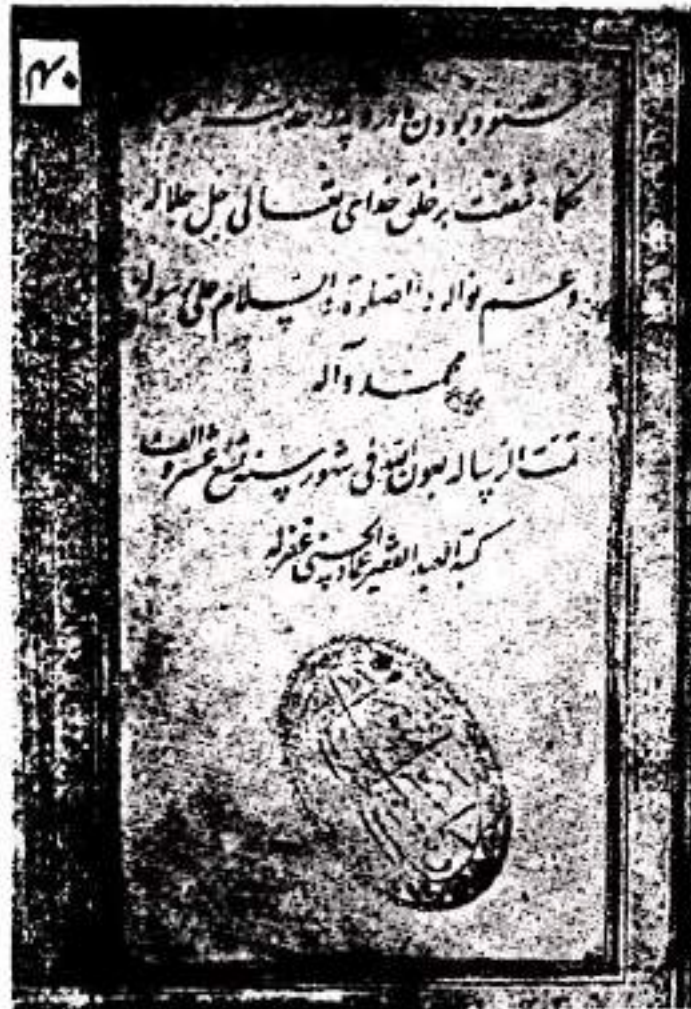 ۴۰
بودن مادر و پدر
شفقت بر خلق خدای تعالی جل جلاله
و عم نواله و الصلوة و السلام علی رسوله
محمد و آله
تمت الرساله بعون الله فی شهور سنه تسع عشر و الف
کتبه العبد الفقیر عماد الحسنی غفر له